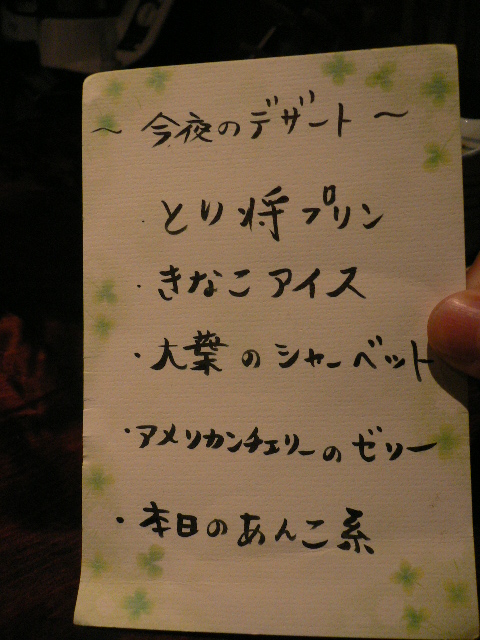 ～ 今夜のデザート ～
・とり将プリン
・きなこアイス
・大葉のシャーベット
・アメリカンチェリーのゼリー
・本日のあんこ系